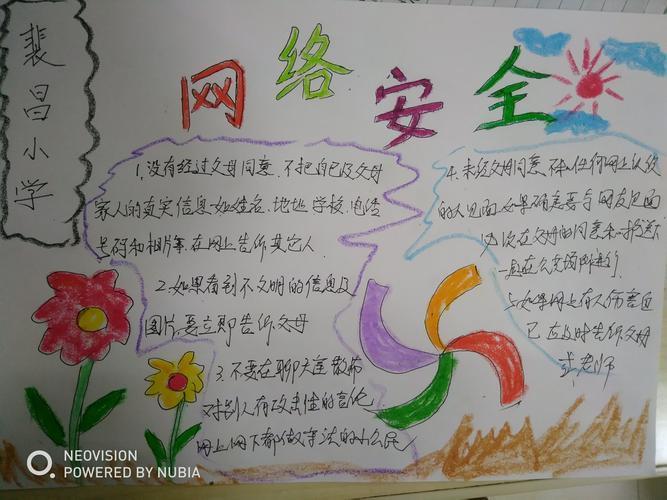 裴昌小学
网络安全
1. 没有经过父母同意，不把自己及父母
家人的真实信息如姓名、地址、学校、电话
号码和相片等，在网上告诉其它人
2. 如果看到不文明的信息及
图片，要立即告诉父母
3. 不要在聊天室散布
对别人有攻击性的言论
网上网下都做守法的小公民
4. 未经父母同意，不和任何网上认识
的人见面，如果确定要与网友见面
必须在父母的同意和
一起在公共场所进行
5. 如果网上有人伤害自
己，应及时告诉父母
或老师
NEOVISION
POWERED BY NUBIA